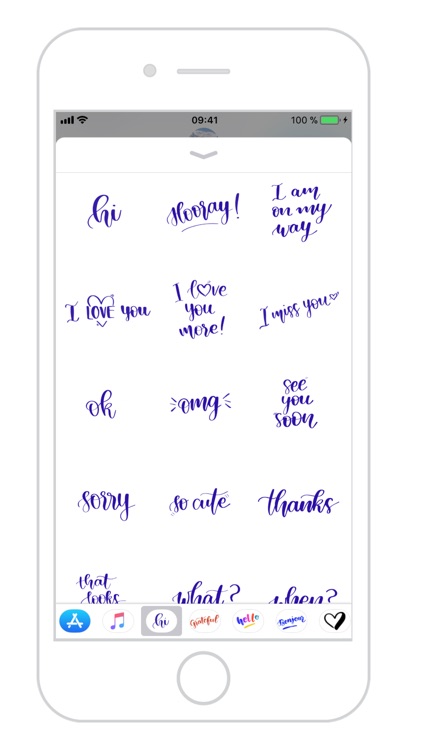 09:41
100 %
hi
Hooray!
I am
on my
way
I LOVE you
I love
you
more!
I miss you
ok
omg
see
you
soon
sorry
so cute
thanks
that
looks
what?
when?
hi
Grateful
hello